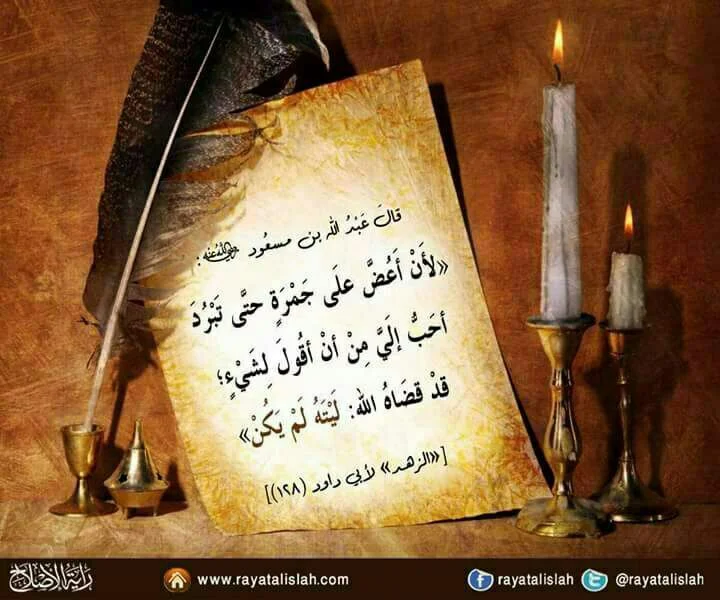 قالَ عَبْدُ الله بن مسعُود رضي الله عنه :
«لأَنْ أَعُضَّ علَى جَمْرَةٍ حتَّى تَبْرُدَ
أحَبُّ إلَيَّ مِنْ أنْ أقُولَ لِشَيْءٍ؛
قدْ قضَاهُ الله: لَيْتَهُ لَمْ يَكُنْ»
[«الزهد» لأبي داود (١٢٨)]
راية الإصلاح www.rayatalislah.com rayatalislah @rayatalislah